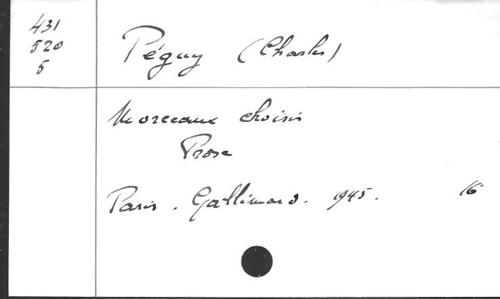 431
520
5
Péguy (Charles)
Morceaux choisis
Prose
Paris. Gallimard. 1945. 16